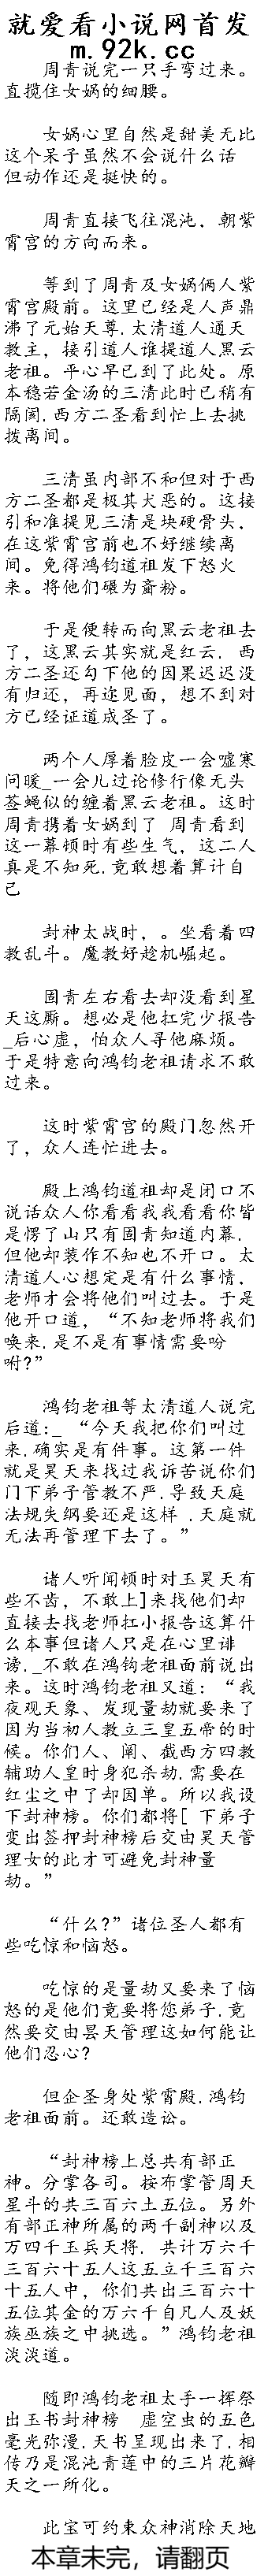 就爱看小说网首发
m.92k.cc
周青说完一只手弯过来。
直揽住女娲的细腰。
女娲心里自然是甜美无比
这个呆子虽然不会说什么话
但动作还是挺快的。
周青直接飞往混沌，朝紫
霄宫的方向而来。
等到了周青及女娲俩人紫
霄宫殿前。这里已经是人声鼎
沸了元始天尊.太清道人通天
教主，接引道人谁提道人黑云
老祖。平心早已到了此处。原
本稳若金汤的三清此时已稍有
隔阂.西方二圣看到忙上去挑
拨离间。
三清虽内部不和但对于西
方二圣都是极其犬恶的。这接
引和准提见三清是块硬骨头，
在这紫霄宫前也不好继续离
间。免得鸿钧道祖发下怒火
来。将他们碾为齑粉。
于是便转而向黑云老祖去
了，这黑云其实就是红云，西
方二圣还勾下他的因果迟迟没
有归还，再迩见面，想不到对
方已经证道成圣了。
两个人厚着脸皮一会嘘寒
问暖_一会儿过论修行像无头
苍蝇似的缠着黑云老祖。这时
周青携着女娲到了 周青看到
这一幕顿时有些生气，这二人
真是不知死.竟敢想着算计自
己
封神太战时，。坐看着四
教乱斗。魔教好趁机崛起。
固青左右看去却没看到星
天这厮。想必是他扛完少报告
_后心虚，怕众人寻他麻烦。
于是特意向鸿钧老祖请求不敢
过来。
这时紫霄宫的殿门忽然开
了，众人连忙进去。
殿上鸿钧道祖却是闭口不
说话众人你看看我我看看你皆
是愣了山只有固青知道内幕.
但他却装作不知也不开口。太
清道人心想定是有什么事情，
老师才会将他们叫过去。于是
他开口道，“不知老师将我们
唤来.是不是有事情需要吩
咐?”
鸿钧老祖等太清道人说完
后道:_ “今天我把你们叫过
来.确实是有件事。这第一件
就是昊天来找过我诉苦说你们
门下弟子管教不严.导致天庭
法规失纲要还是这样 .天庭就
无法再管理下去了。”
诸人听闻顿时对玉昊天有
些不齿，不敢上]来找他们却
直接去找老师扛小报告这算什
么本事但诸人只是在心里诽
谤._不敢在鸿钩老祖面前说出
来。这时鸿钧老祖又道：“我
夜观天象、发现量劫就要来了
因为当初人教立三皇五帝的时
候。你们人、阐、截西方四教
辅助人皇时身犯杀劫.需要在
红尘之中了却因单。所以我设
下封神榜。你们都将[ 下弟子
变出签押封神榜后交由昊天管
理女的此才可避免封神量
劫。”
“什么?”诸位圣人都有
些吃惊和恼怒。
吃惊的是量劫又要来了恼
怒的是他们竟要将您弟子.竟
然要交由昙天管理这如何能让
他们忍心?
但企圣身处紫霄殿.鸿钧
老祖面前。还敢造讼。
“封神榜上总共有部正
神。分掌各司。按布掌管周天
星斗的共三百六土五位。另外
有部正神所属的两千副神以及
万四千玉兵天将，共计万六千
三百六十五人这五立千三百六
十五人中，你们共出三百六十
五位其金的万六千自凡人及妖
族巫族之中挑选。”鸿钧老祖
淡淡道。
随即鸿钧老祖太手一挥祭
出玉书封神榜 虚空虫的五色
毫光弥漫.天书呈现出来了.相
传乃是混沌青莲中的三片花瓣
天之一所化。
此宝可约束众神消除天地
本章未完，请翻页